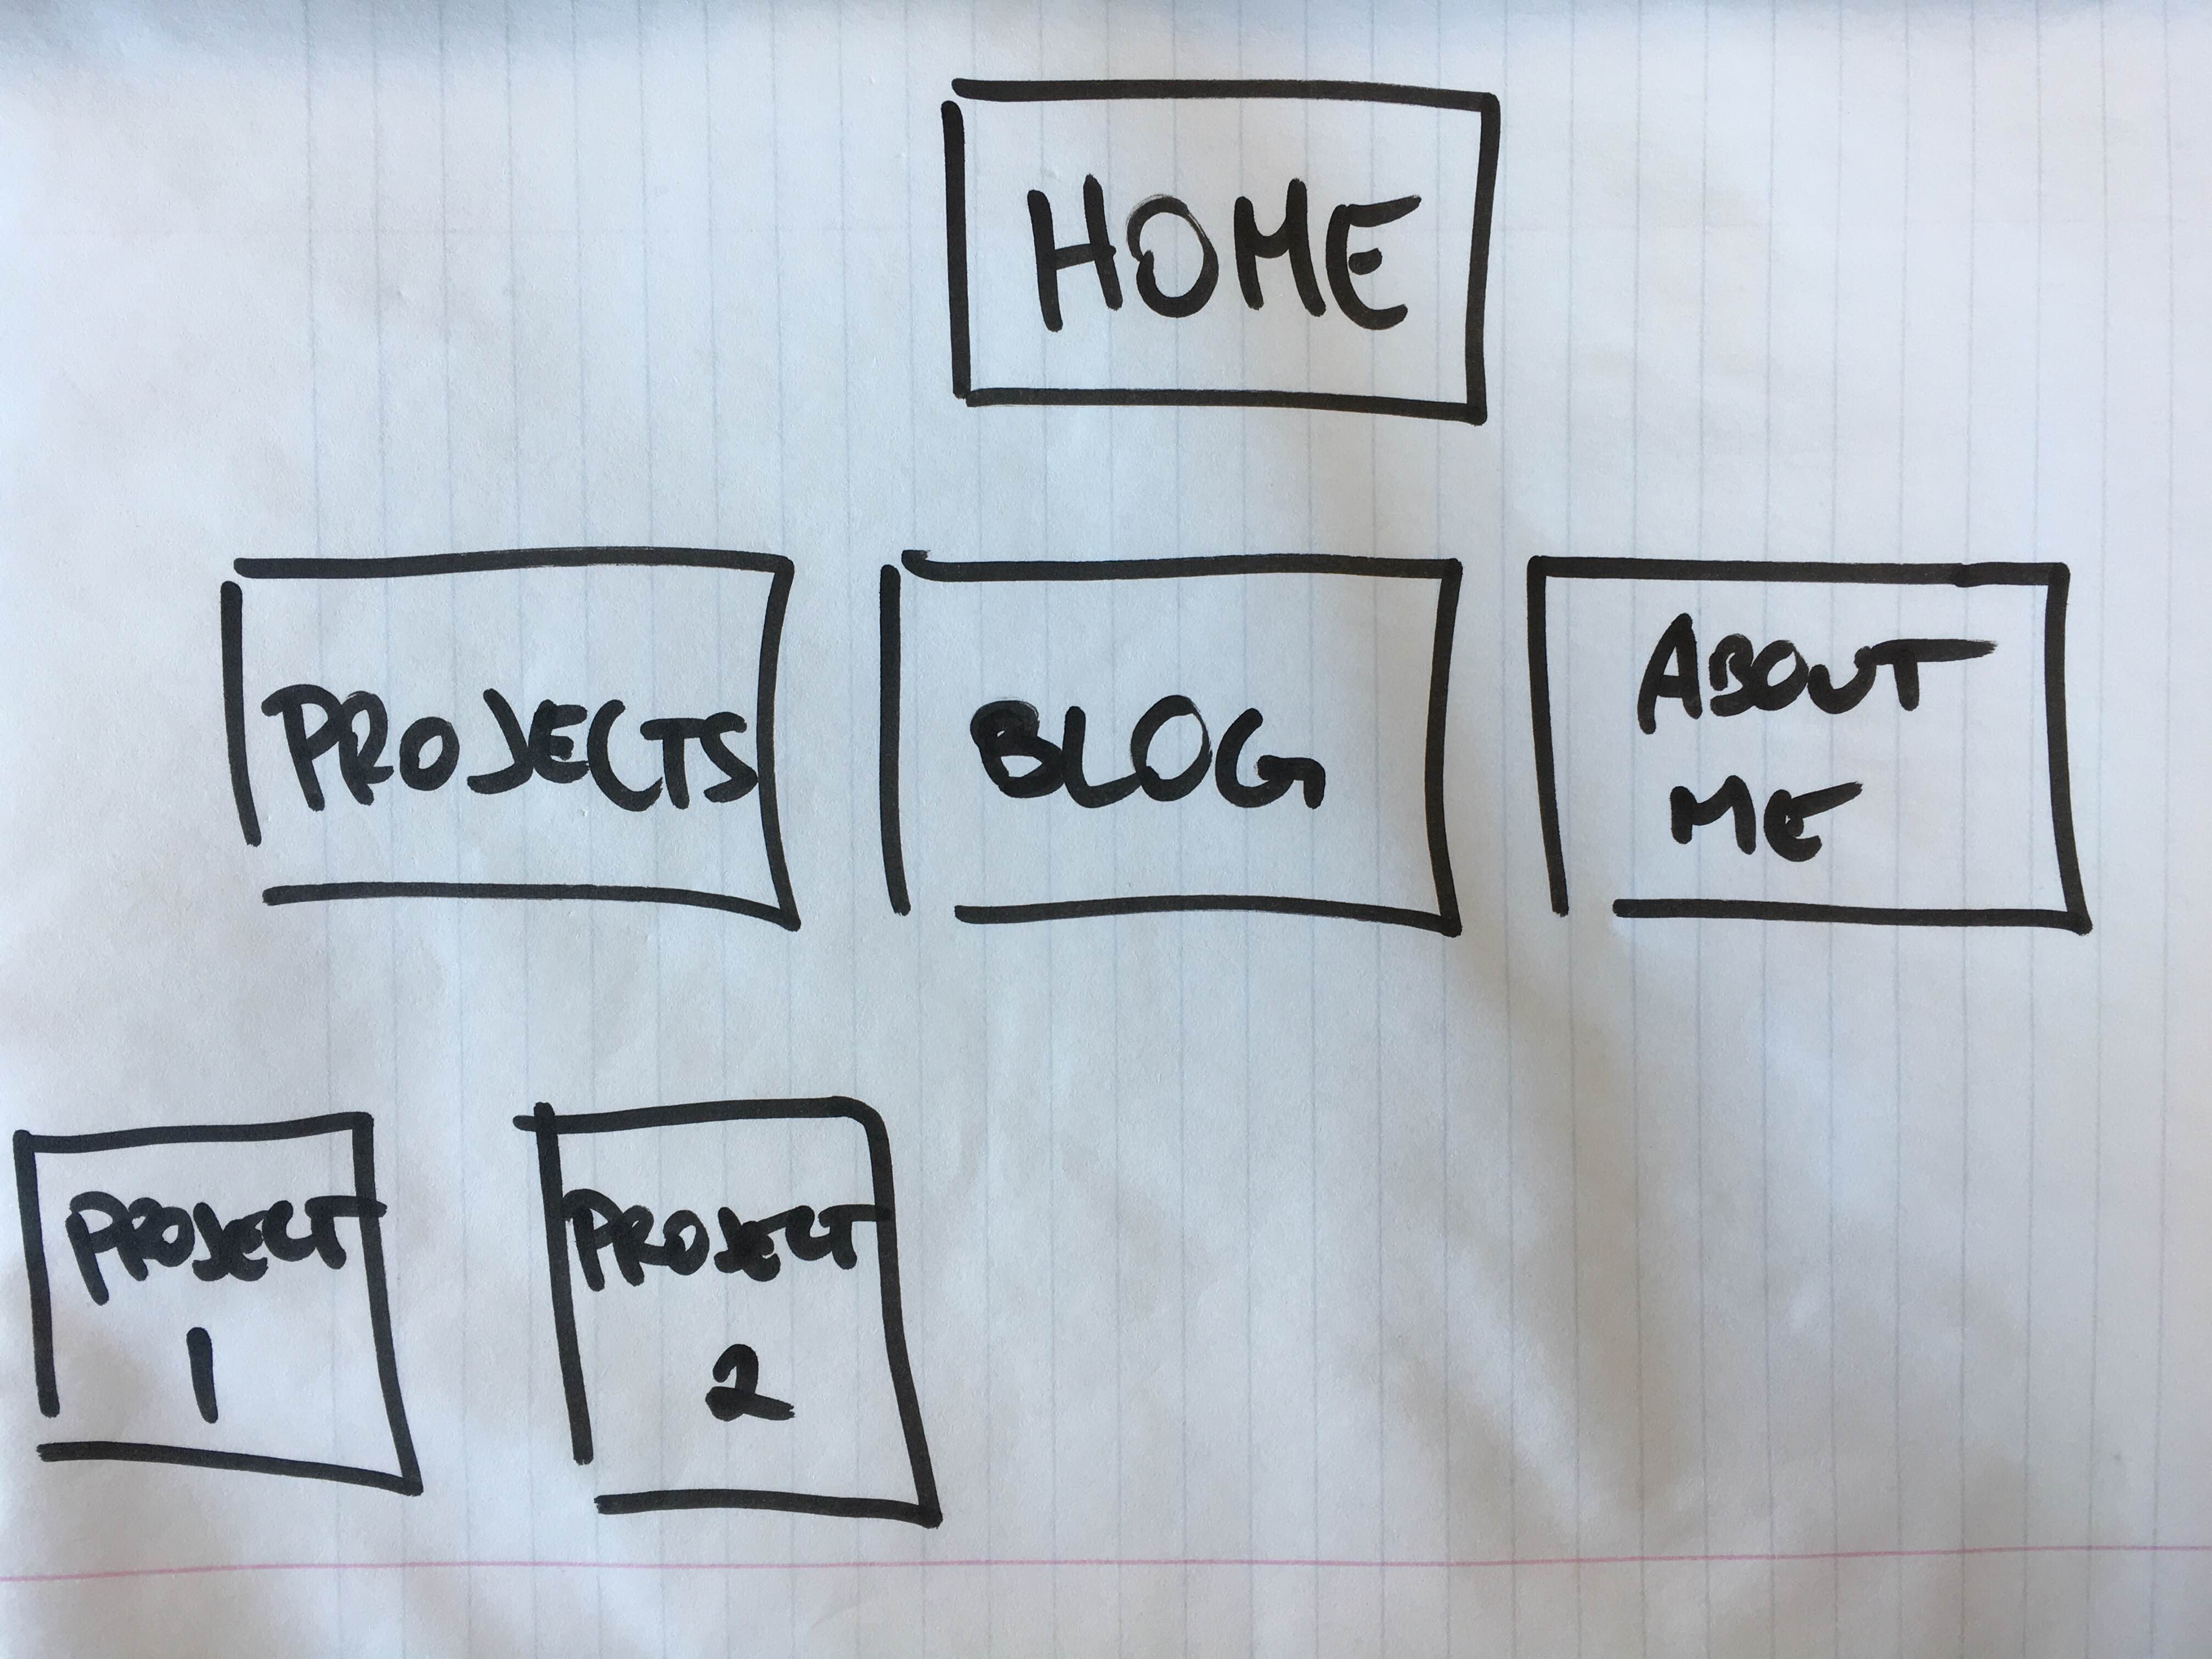 HOME
PROJECTS
BLOG
ABOUT
ME
PROJECT
1
PROJECT
2